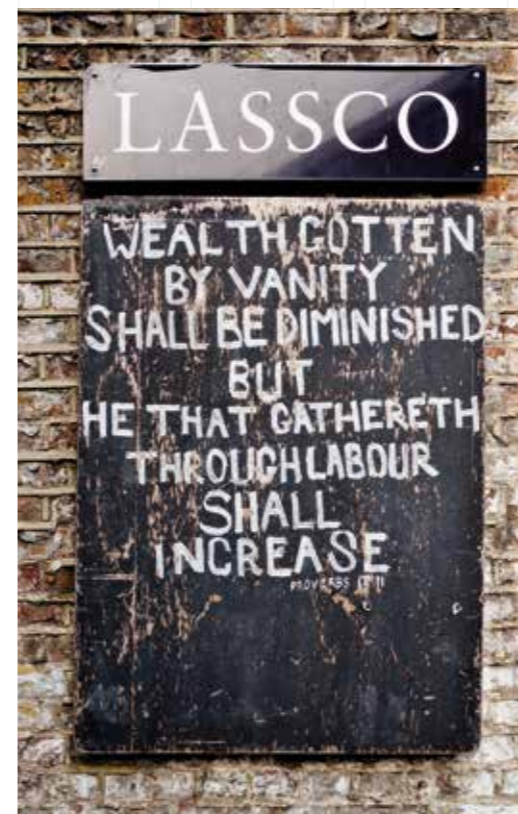 LASSCO
WEALTH GOTTEN
BY VANITY
SHALL BE DIMINISHED
BUT
HE THAT GATHERETH
THROUGH LABOUR
SHALL
INCREASE
PROVERBS